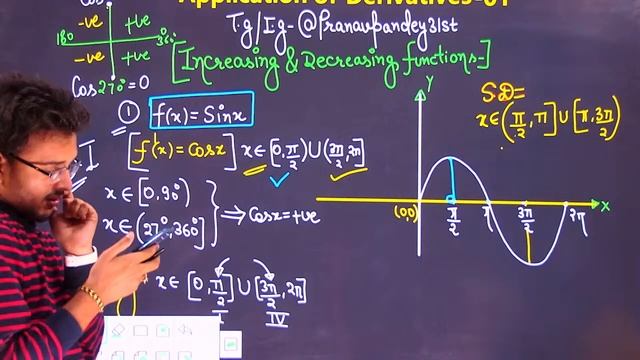 Application of Derivatives-01
T.g/I.g- @Pranavpandey31st
[Increasing & Decreasing functions-]
Cos
-ve +ve
180 360°
-ve +ve
Cos270°=0
① f(x)=Sinx
I [f'(x)=Cosx] x∈[0,π/2)∪(3π/2,2π]
x∈[0,90°)
x∈(270°,360°]
⇒Cosx=+ve
x∈[0,π/2]∪[3π/2,2π]
I IV
S.D=
x∈(π/2,π]∪[π,3π/2)
Y
(0,0) π/2 π 3π/2 2π X